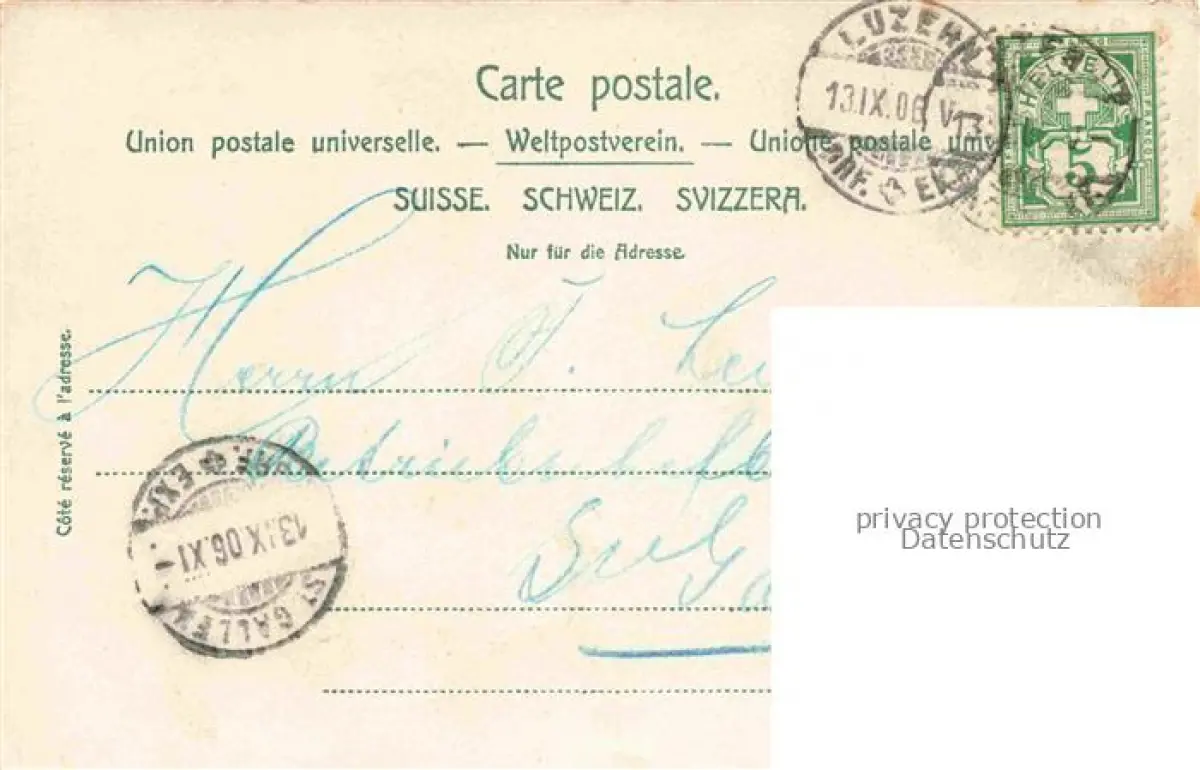 Carte postale.
Union postale universelle. — Weltpostverein. — Unione postale univ
SUISSE. SCHWEIZ. SVIZZERA.
Nur für die Adresse.
LUZERN
13.IX.06 V
BRF. EXP.
13.
HELVETIA
FRANCO
5
Côté réservé à l'adresse.
Herrn
ST. GALLEN
13.IX.06.XI-
BRF. EXP.
privacy protection
Datenschutz